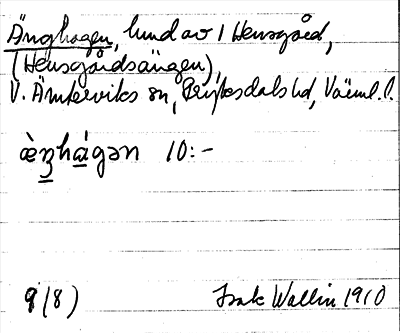 Änghagen, lund av 1 Hensgård,
(Hensgårdsängen),
V. Ämterviks sn, Fryksdals hd, Värml. l.
æ̀ŋhágən 10:-
9(8) Isak Wallin 1910